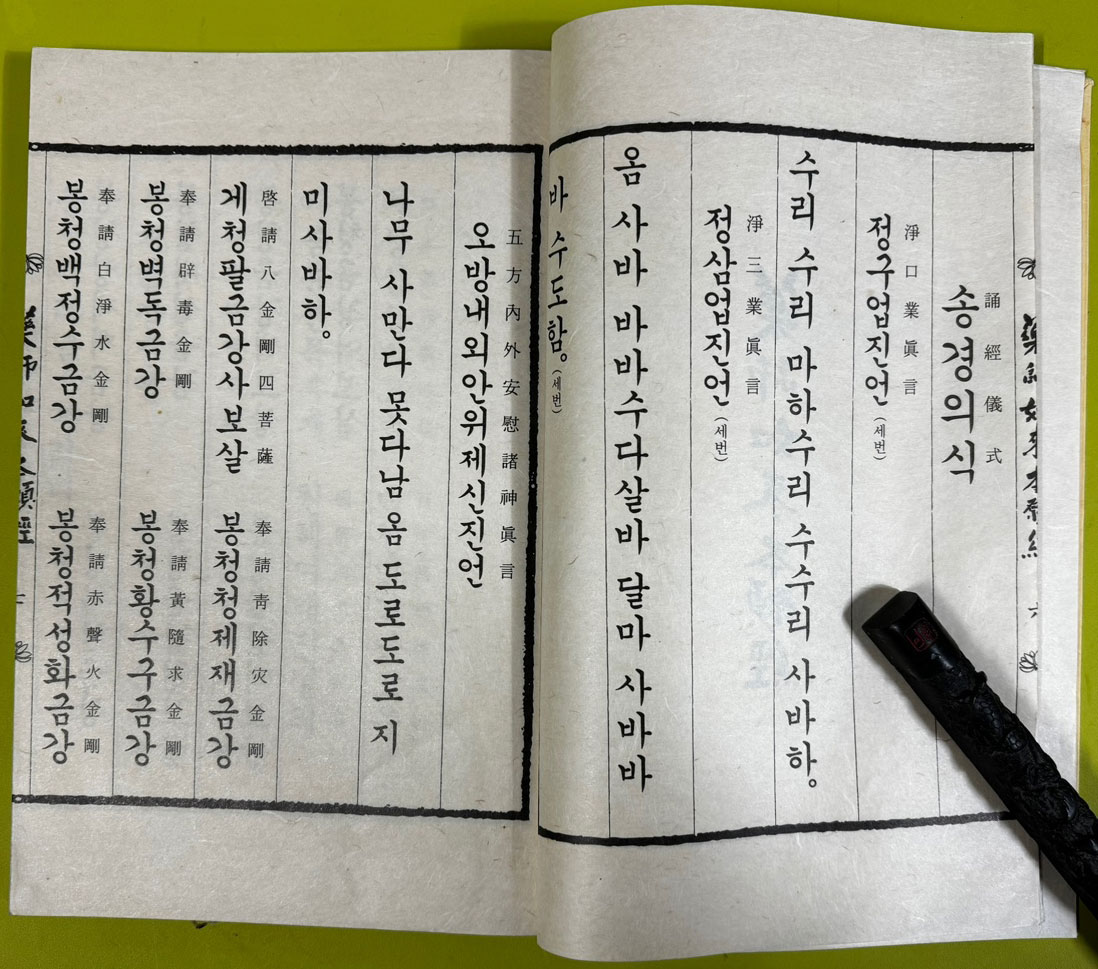 誦經儀式
송경의식
淨口業眞言
정구업진언 (세번)
수리 수리 마하수리 수수리 사바하。
淨三業眞言
정삼업진언 (세번)
옴 사바 바바수다살바 달마 사바바
바 수도함。(세번)
五方內外安慰諸神眞言
오방내외안위제신진언
나무 사만다 못다남 옴 도로도로 지
미사바하。
啓請八金剛四菩薩
계청팔금강사보살
奉請靑除灾金剛
봉청청제재금강
奉請辟毒金剛
봉청벽독금강
奉請黃隨求金剛
봉청황수구금강
奉請白淨水金剛
봉청백정수금강
奉請赤聲火金剛
봉청적성화금강